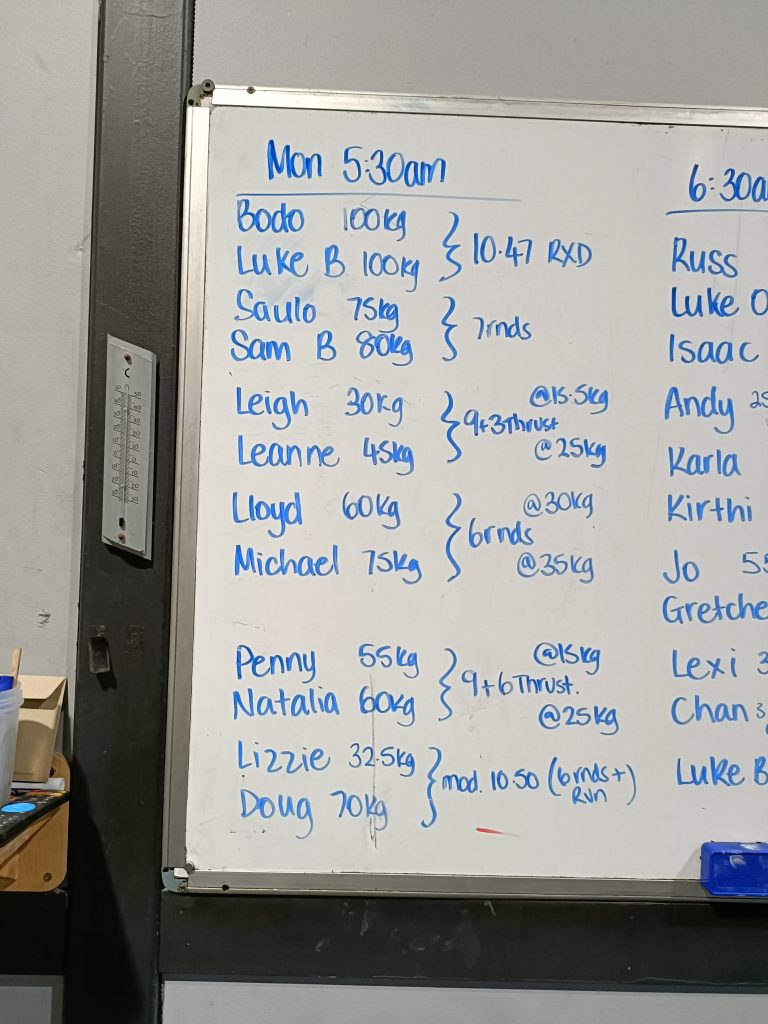 Mon 5:30am
Bodo 100kg
Luke B 100kg
} 10.47 RXD
Saulo 75kg
Sam B 80kg
} 7rnds
Leigh 30kg
Leanne 45kg
} 9+3Thrust
@15.5kg
@25kg
Lloyd 60kg
Michael 75kg
} 6rnds
@30kg
@35kg
Penny 55kg
Natalia 60kg
} 9+6Thrust.
@15kg
@25kg
Lizzie 32.5kg
Doug 70kg
} mod. 10.50 (6rnds+)
Run
6:30a
Russ
Luke O
Isaac
Andy
Karla
Kirthi
Jo
Gretche
Lexi 3
Chan
Luke B